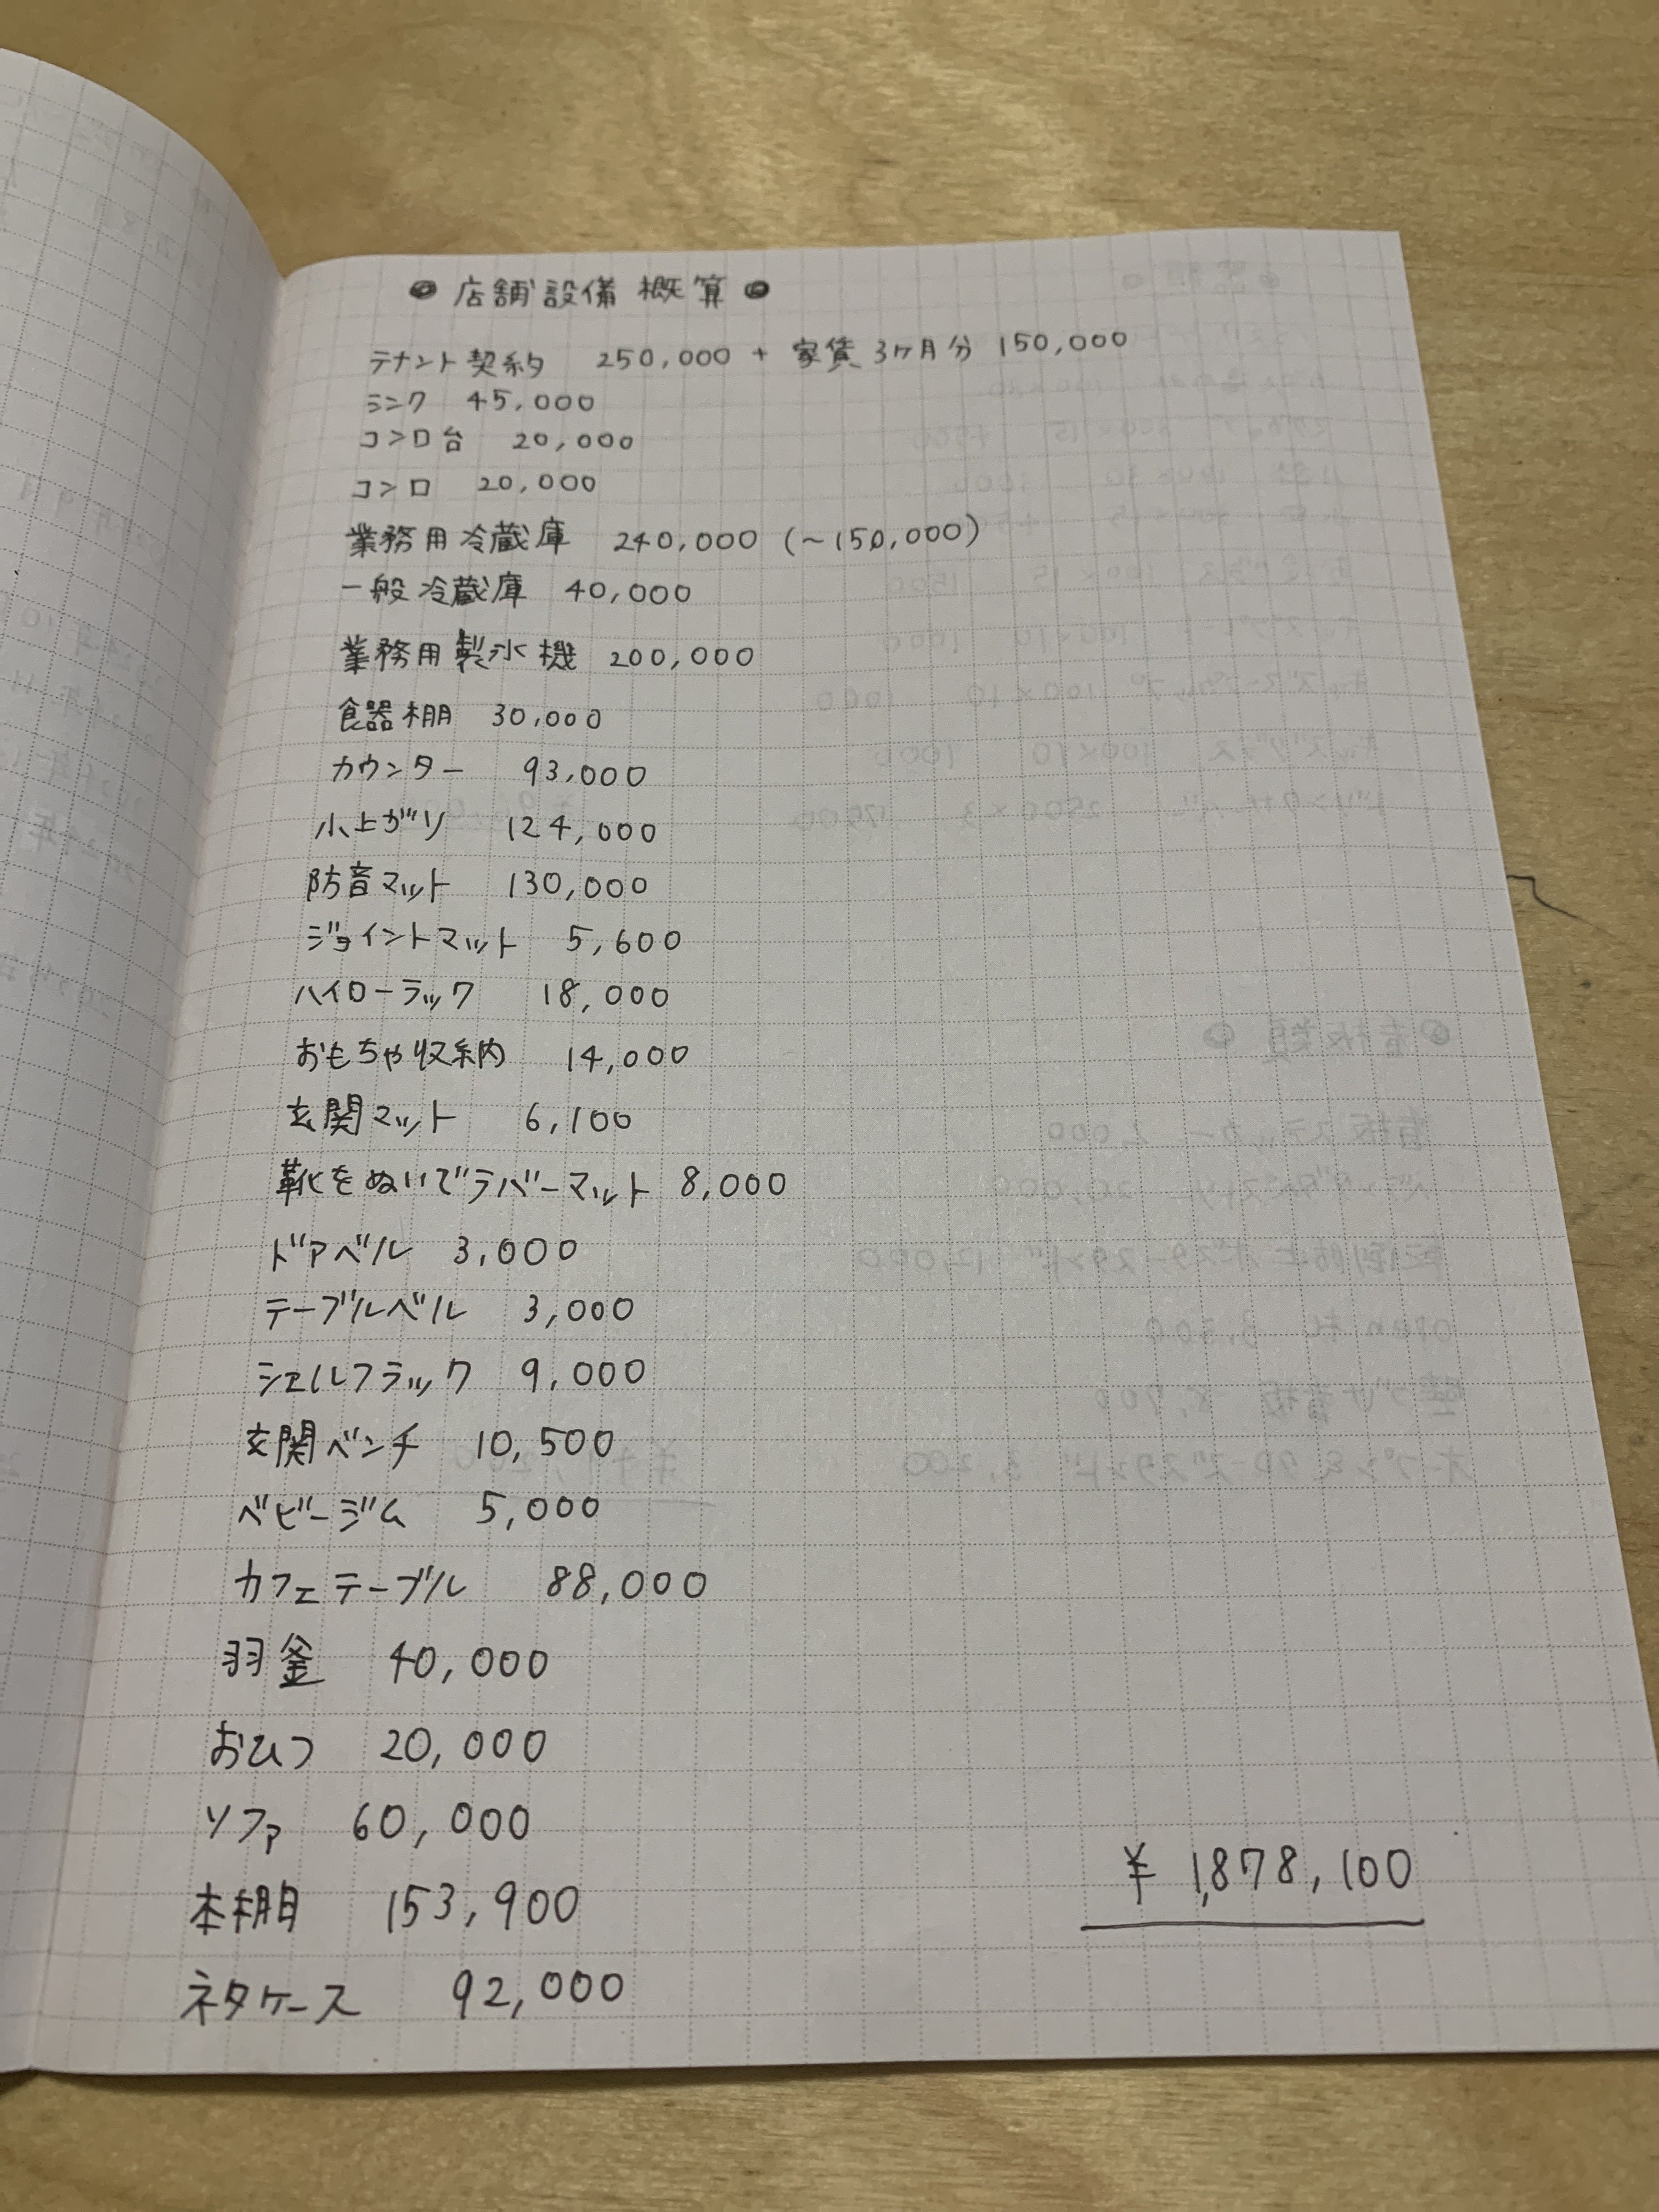 ◎ 店舗設備 概算 ◎
テナント契約 250,000 + 家賃 3ヶ月分 150,000
シンク 45,000
コンロ台 20,000
コンロ 20,000
業務用冷蔵庫 240,000 (~150,000)
一般冷蔵庫 40,000
業務用製氷機 200,000
食器棚 30,000
カウンター 93,000
小上がり 124,000
防音マット 130,000
ジョイントマット 5,600
ハイローラック 18,000
おもちゃ収納 14,000
玄関マット 6,100
靴をぬいでラバーマット 8,000
ドアベル 3,000
テーブルベル 3,000
シェルフラック 9,000
玄関ベンチ 10,500
ベビージム 5,000
カフェテーブル 88,000
羽釜 40,000
おひつ 20,000
ソファ 60,000
本棚 153,900
ネタケース 92,000
¥ 1,878,100